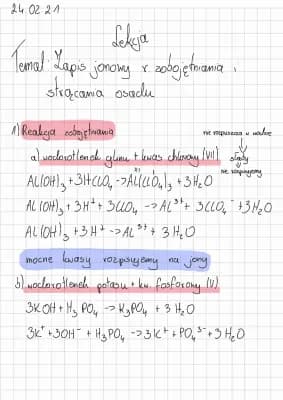 24.02.21
Lekcja
Temat: Zapis jonowy r. zobojętniania i
strącania osadu
1) Reakcja zobojętniania
nie rozpuszcza w wodzie
a) wodorotlenek glinu + kwas chlorowy (VII)
słaby
nie rozpisujemy
Al(OH)₃ + 3HClO₄ -> Al(ClO₄)₃ + 3H₂O
Al(OH)₃ + 3H⁺ + 3ClO₄⁻ -> Al³⁺ + 3ClO₄⁻ + 3H₂O
Al(OH)₃ + 3H⁺ -> Al³⁺ + 3H₂O
mocne kwasy rozpisujemy na jony
b) wodorotlenek potasu + kw. fosforowy (V)
3KOH + H₃PO₄ -> K₃PO₄ + 3H₂O
3K⁺ + 3OH⁻ + H₃PO₄ -> 3K⁺ + PO₄³⁻ + 3H₂O